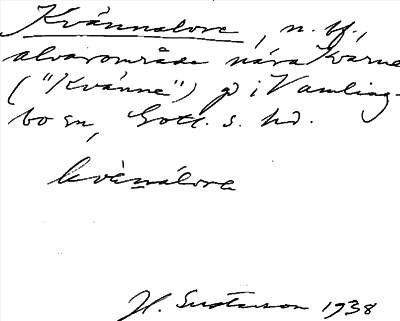 Kvännalore, n. bf.,
alvarområde nära Kvarne
("Kvänne") på i Vamling-
bo sn, Gotl. s. hd.
kvänalore
H. Gustavson 1938